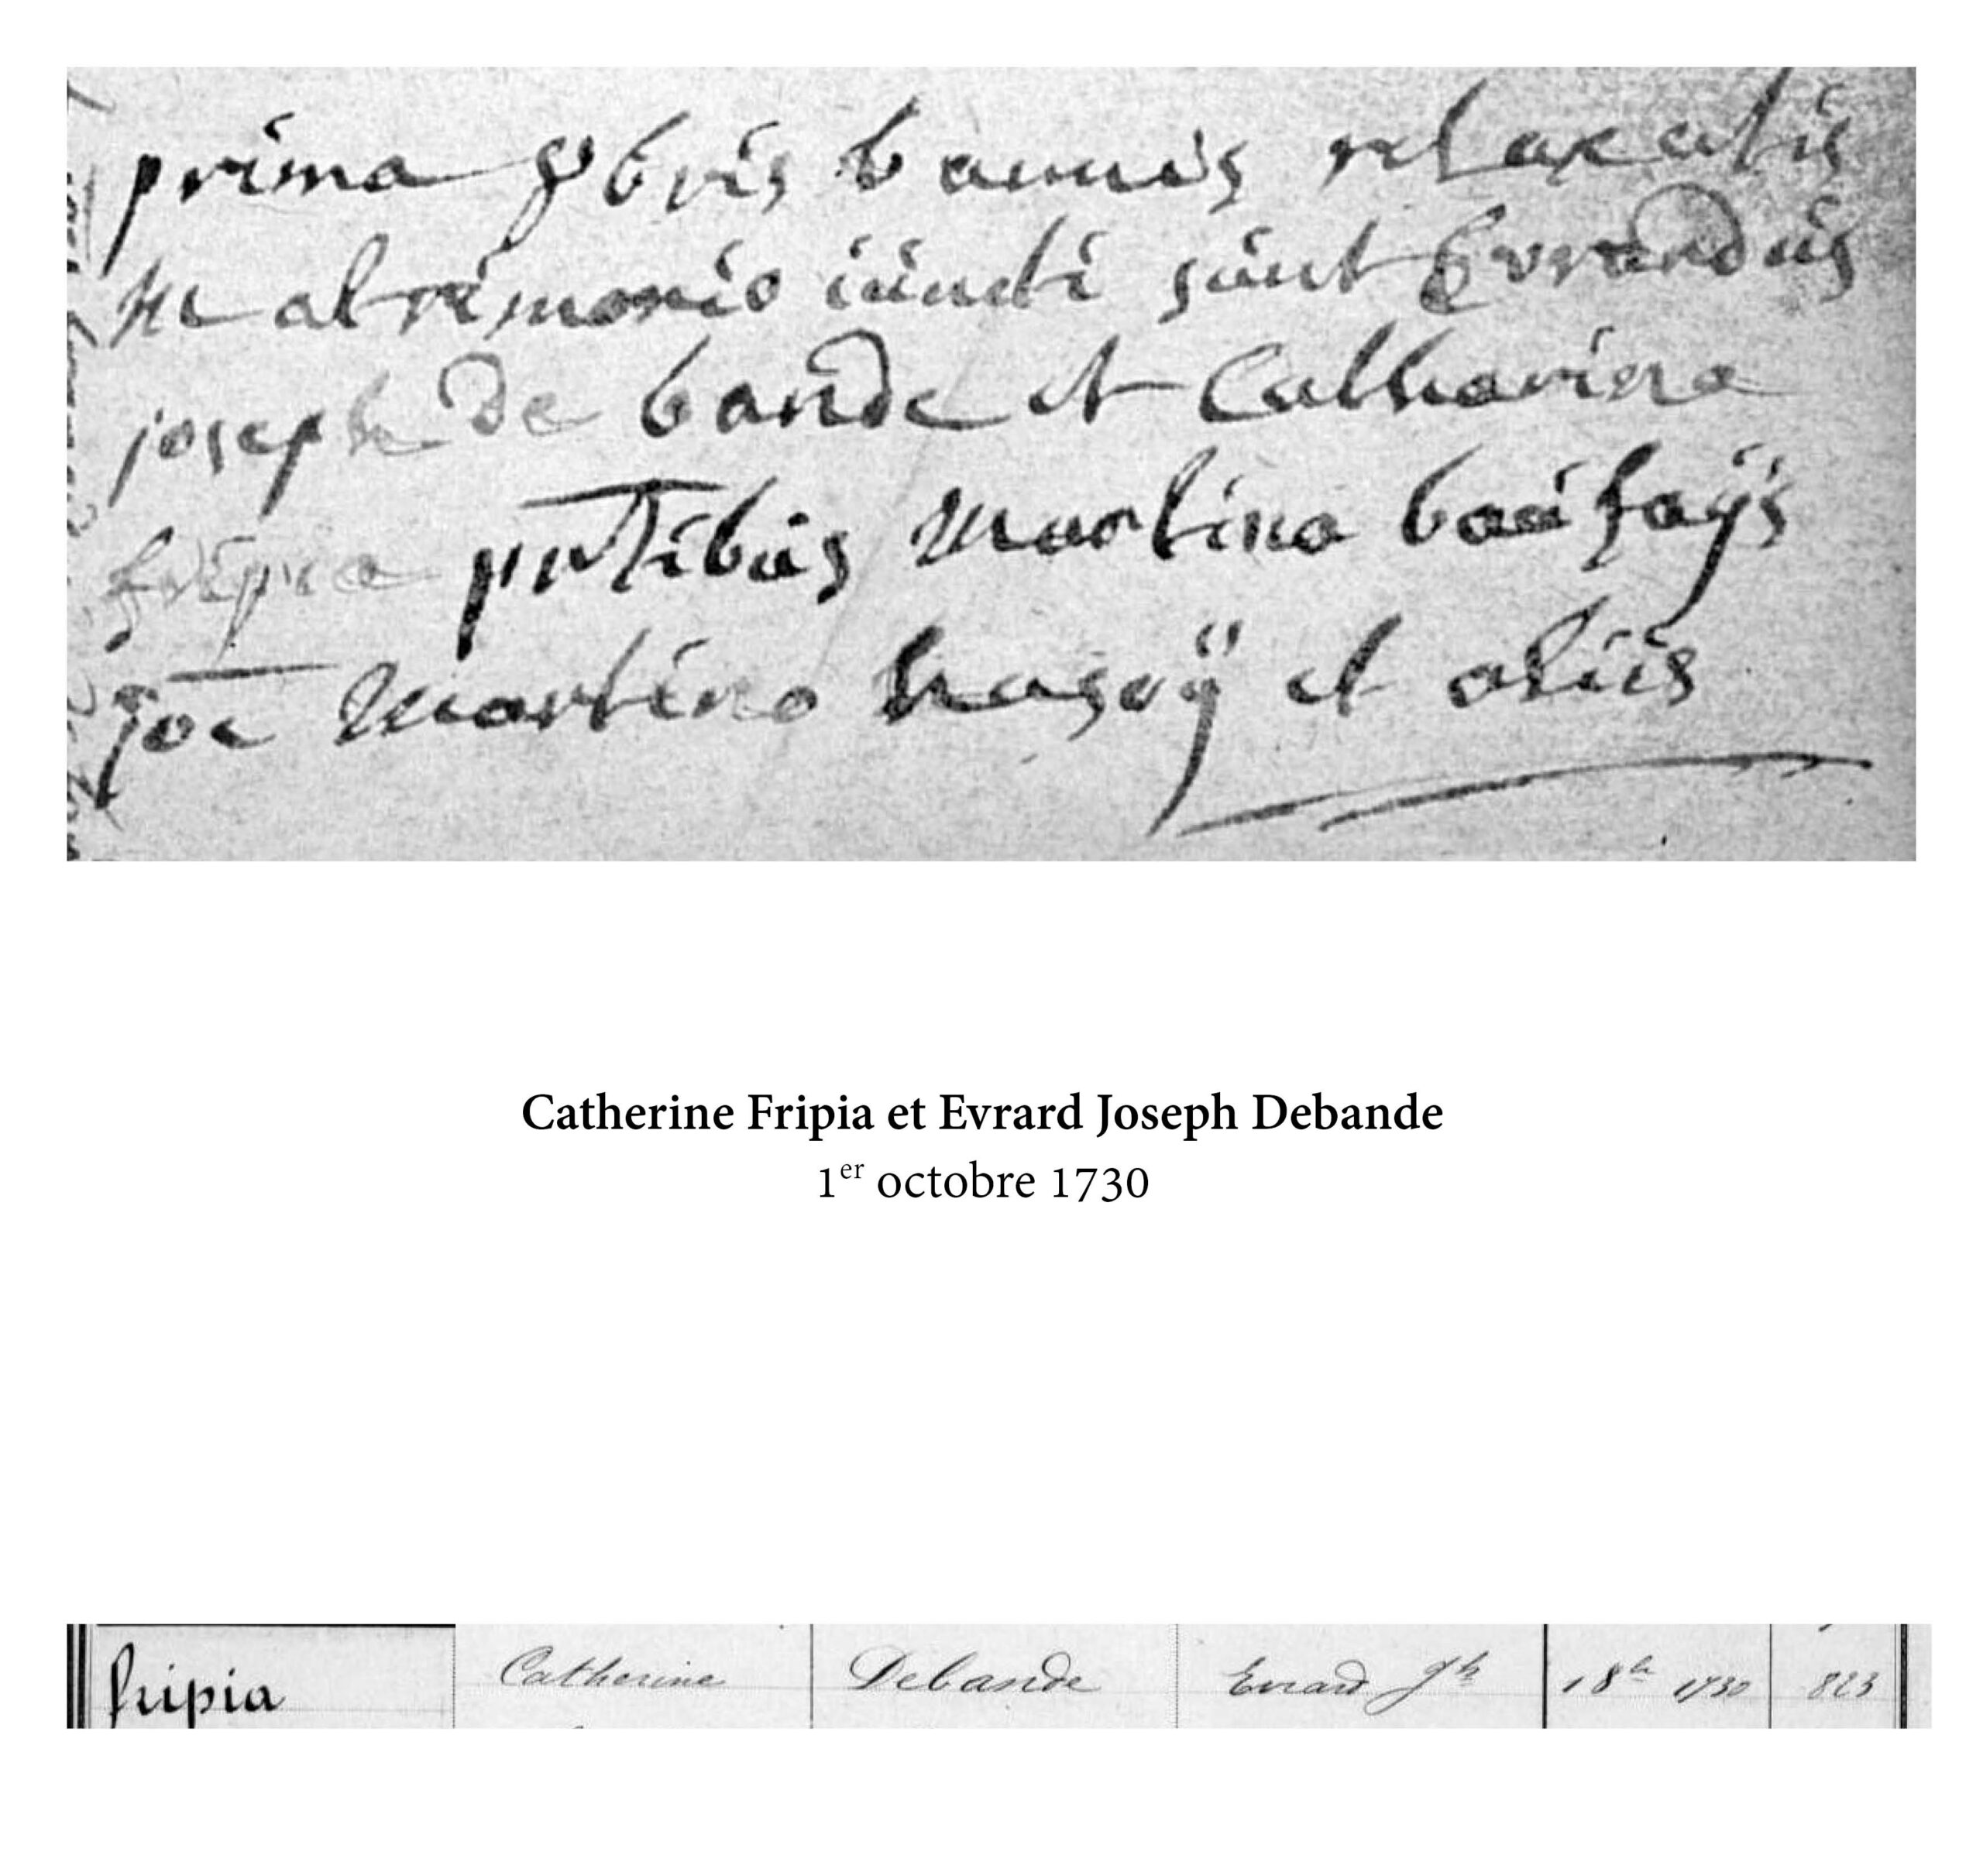 prima 8bris bannis relaxatis
Matrimonio iuncti sunt Evrardus
joseph de bande et Catharina
fripia pntibus Martino baufays
joe Martino hasoÿ et aliis
Catherine Fripia et Evrard Joseph Debande
1er octobre 1730
fripia Catherine Debande Evrard Jh 1 8bre 1730 823